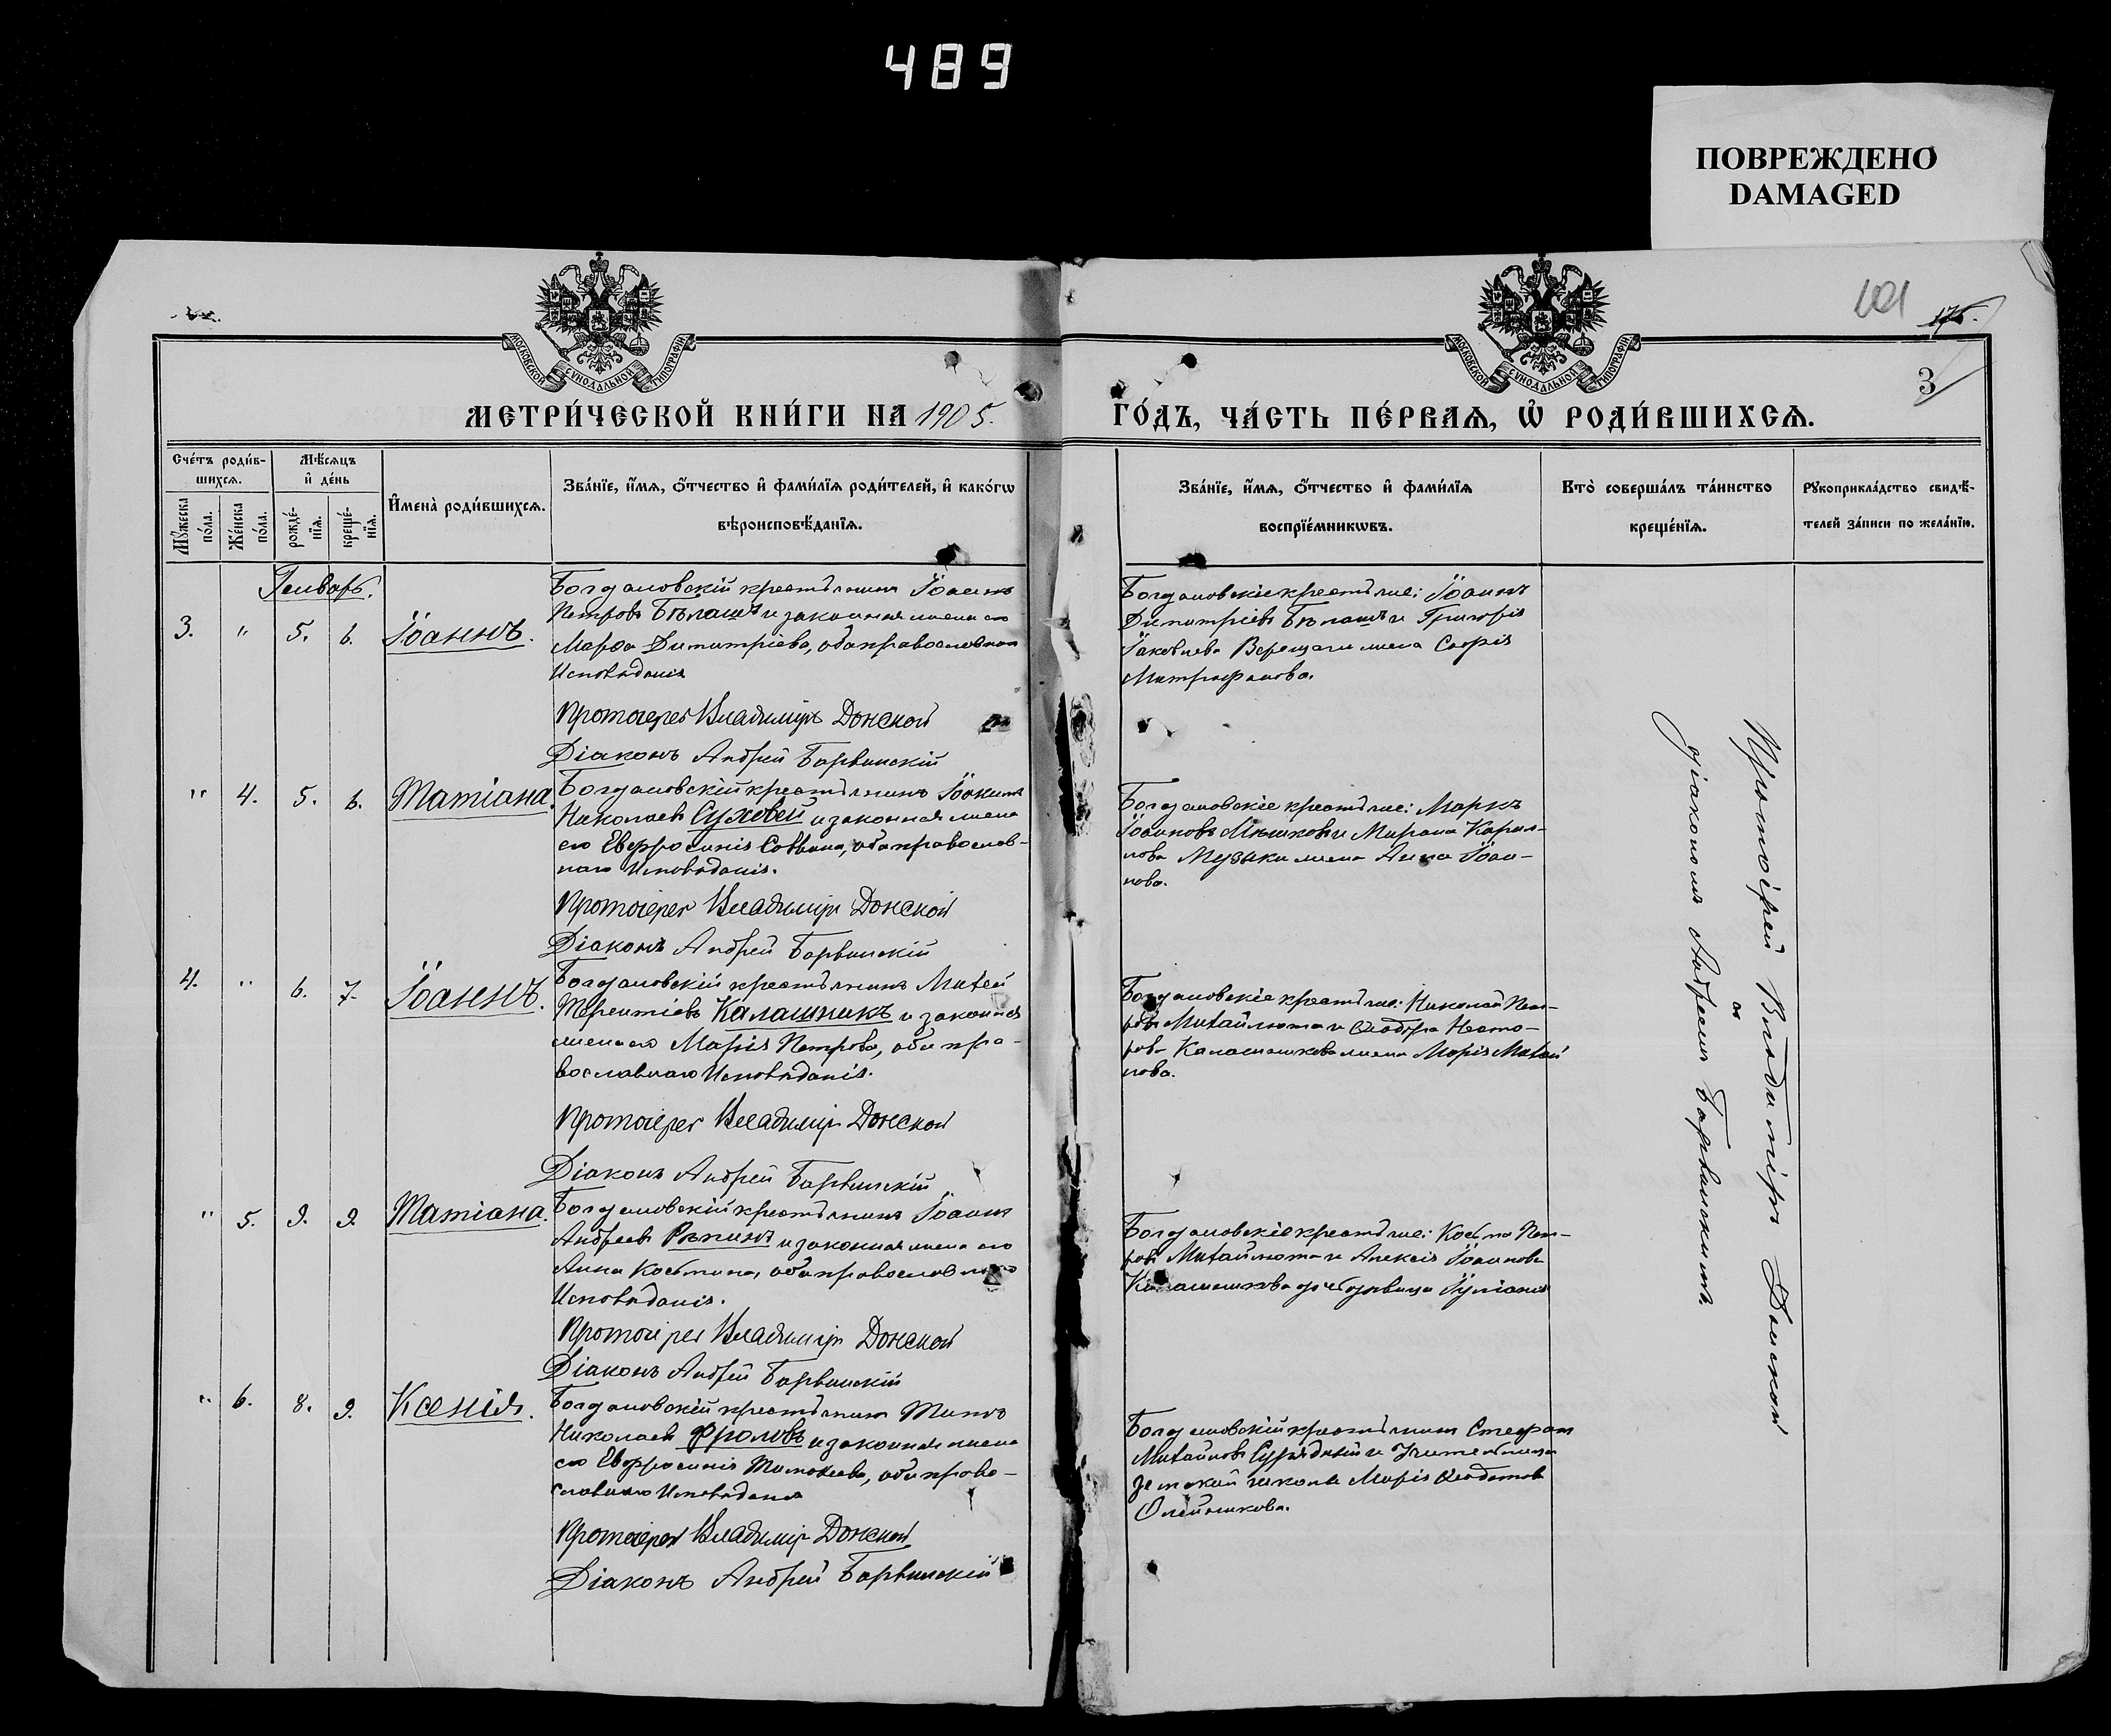 489
ПОВРЕЖДЕНО
DAMAGED
101
176.
3
МОСКОВСКОЙ СУНОДАЛЬНОЙ ТИПОГРАФІИ
МОСКОВСКОЙ СУНОДАЛЬНОЙ ТИПОГРАФІИ
МЕТРИ́ЧЕСКОЙ КНИ́ГИ НА 1905.
ГО́ДЪ, ЧА́СТЬ ПЕ́РВАѦ, Ѽ РОДИ́ВШИХСѦ.
Сче́тъ роди́в-
шихсѧ.
Мѣ́сѧцъ
и҆ де́нь
Мꙋ́жеска
по́ла.
Же́нска
по́ла.
рожде́-
нїѧ.
креще́-
нїѧ.
И҆мена̀ роди́вшихсѧ.
Зва́нїе, и҆́мѧ, ѻ҆́тчество и҆ фами́лїѧ роди́телей, и҆ како́гѡ
вѣроисповѣ́данїѧ.
Зва́нїе, и҆́мѧ, ѻ҆́тчество и҆ фами́лїѧ
воспрїе́мникѡвъ.
Кто̀ соверша́лъ та́инство
креще́нїѧ.
Рꙋкоприкла́дство свидѣ́-
телей за́писи по жела́нїю.
Генварь.
3. " 5. 6. Іоаннъ.
Богдановскій крестьянинъ Іоаннъ
Петровъ Бѣлашъ и законная жена его
Марѳа Димитріева, оба православнаго
Исповѣданія
Протоіерей Владиміръ Донской
Діаконъ Андрей Барвинскій
Богдановскіе крестьяне: Іоаннъ
Димитріевъ Бѣлашъ и Григорія
Іаковлева жена Софія
Митрофанова.
" 4. 5. 6. Татіана.
Богдановскій крестьянинъ Іоакимъ
Николаевъ Суховей и законная жена
его Евфросинія Саввина, оба православ-
наго Исповѣданія.
Протоіерей Владиміръ Донской
Діаконъ Андрей Барвинскій
Богдановскіе крестьяне: Маркъ
Іоанновъ Мѣшковъ и Карпа
Музыки жена Анна Іоан-
нова.
4. " 6. 7. Іоаннъ.
Богдановскій крестьянинъ Матѳей
Терентіевъ Калашникъ и законная
жена его Марія Петрова, оба пра-
вославнаго Исповѣданія.
Протоіерей Владиміръ Донской
Діаконъ Андрей Барвинскій
Богдановскіе крестьяне: Николай Пет-
ровъ Михайлюта и Ѳеодора Несто-
рова Калашникова жена Марія Михай
лова.
" 5. 9. 9. Татіана.
Богдановскій крестьянинъ Іоаннъ
Андреевъ Рѣпинъ и законная жена его
Анна Косьмина, оба православнаго
Исповѣданія.
Протоіерей Владиміръ Донской
Діаконъ Андрей Барвинскій
Богдановскіе крестьяне: Косьма Пет-
ровъ Михайлюта и Алексія Іоаннова
Калашникова дочь дѣвица Іуліанія
" 6. 8. 9. Ксенія.
Богдановскій крестьянинъ Титъ
Николаевъ Фроловъ и законная жена
его Евфросинія Тимоѳеева, оба право-
славнаго Исповѣданія
Протоіерей Владиміръ Донской
Діаконъ Андрей Барвинскій
Богдановскій крестьянинъ Стефанъ
Михайловъ и Учительница
земской школы Марія
Олейникова.
Протоіерей Владиміръ Донской
съ
діакономъ Андреемъ Барвинскимъ.